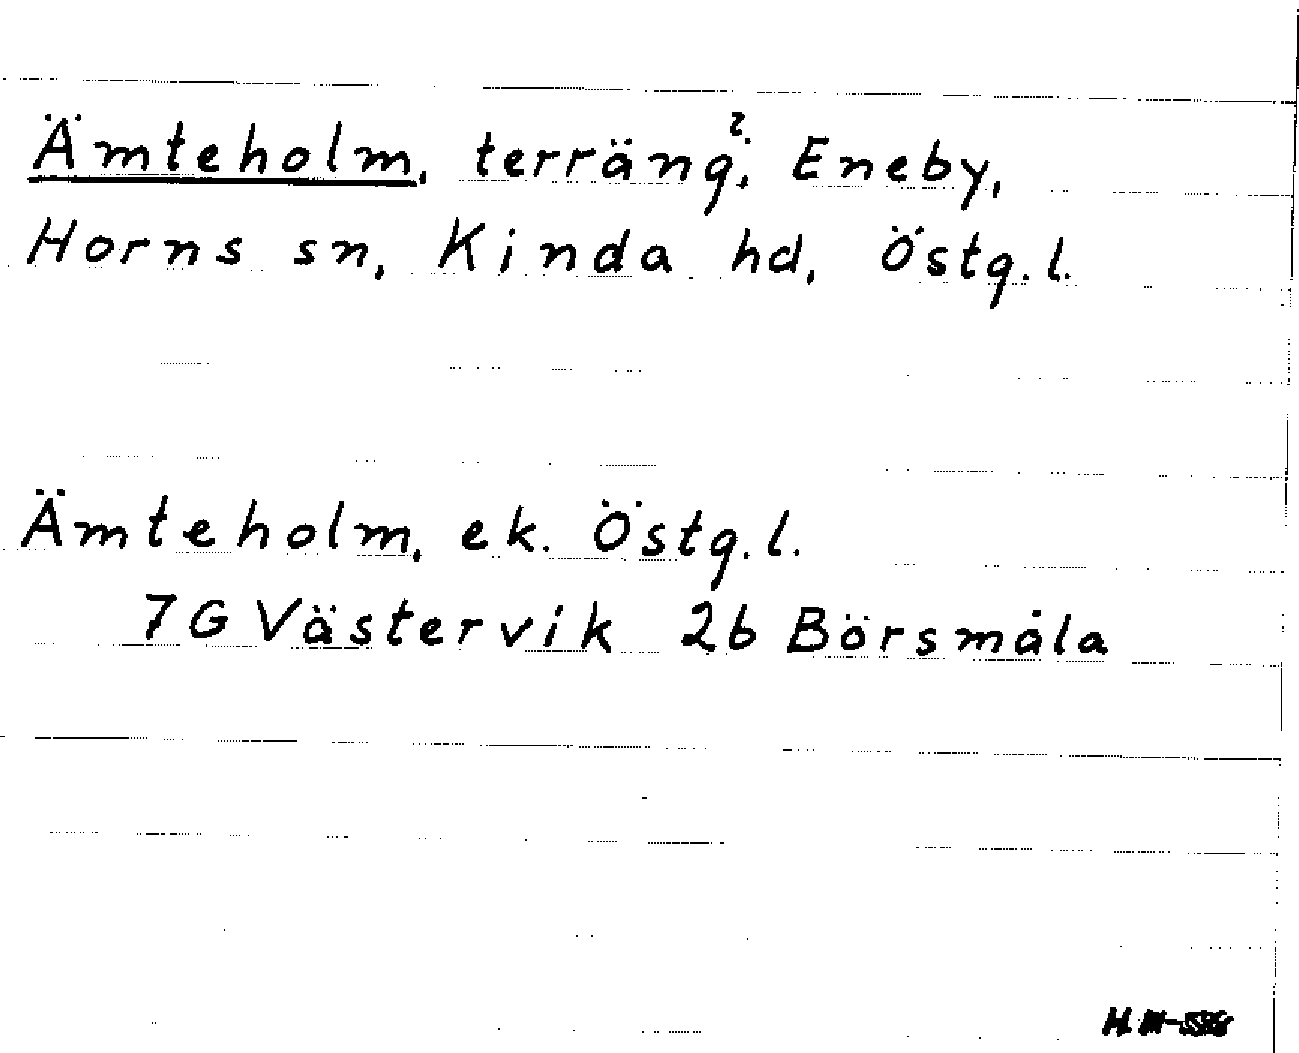 Ämteholm, terräng?; Eneby,
Horns sn, Kinda hd, Östg.l.
Ämteholm, ek. Östg.l.
7G Västervik 2b Börsmåla